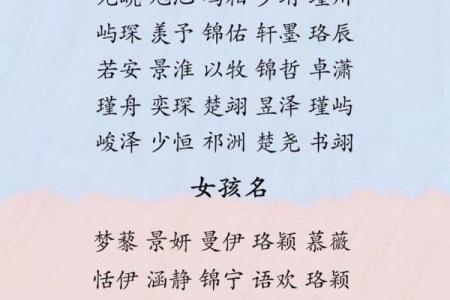 屿琛 羡予 锦佑 轩墨 珞辰
若安 景淮 以牧 锦哲 卓潇
瑾舟 奕琛 楚翊 昱泽 瑾屿
峻泽 少恒 祁洲 楚尧 书翊
女孩名
梦藜 景妍 曼伊 珞颖 慕薇
恬伊 涵静 锦宁 语欢 珞颖